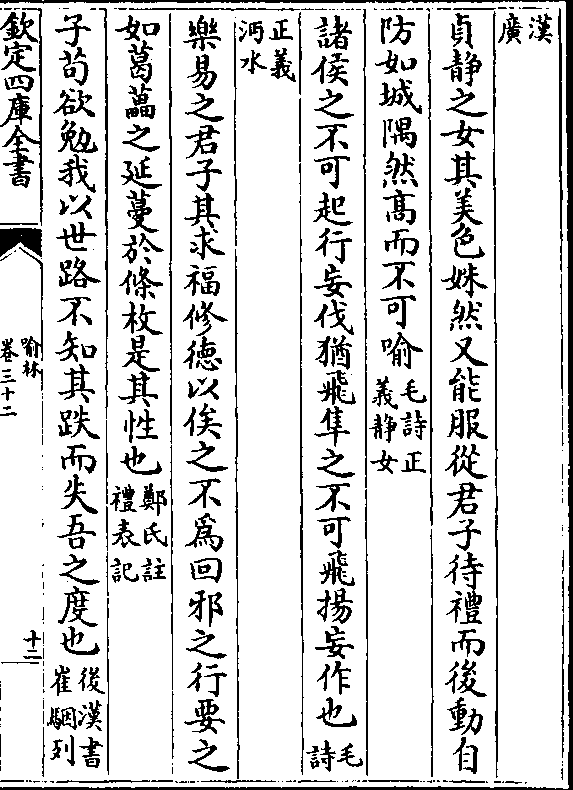 漢廣
貞靜之女其美色姝然又能服從君子待禮而後動自
防如城隅然高而不可喻毛詩正義靜女
諸侯之不可起行妄伐猶飛隼之不可飛揚妄作也毛詩
正義沔水
樂易之君子其求福修德以俟之不為回邪之行要之
如葛藟之延蔓於條枚是其性也鄭氏註禮表記
子苟欲勉我以世路不知其跌而失吾之度也後漢書崔駰列
欽定四庫全書
喻林
卷三十二
十二